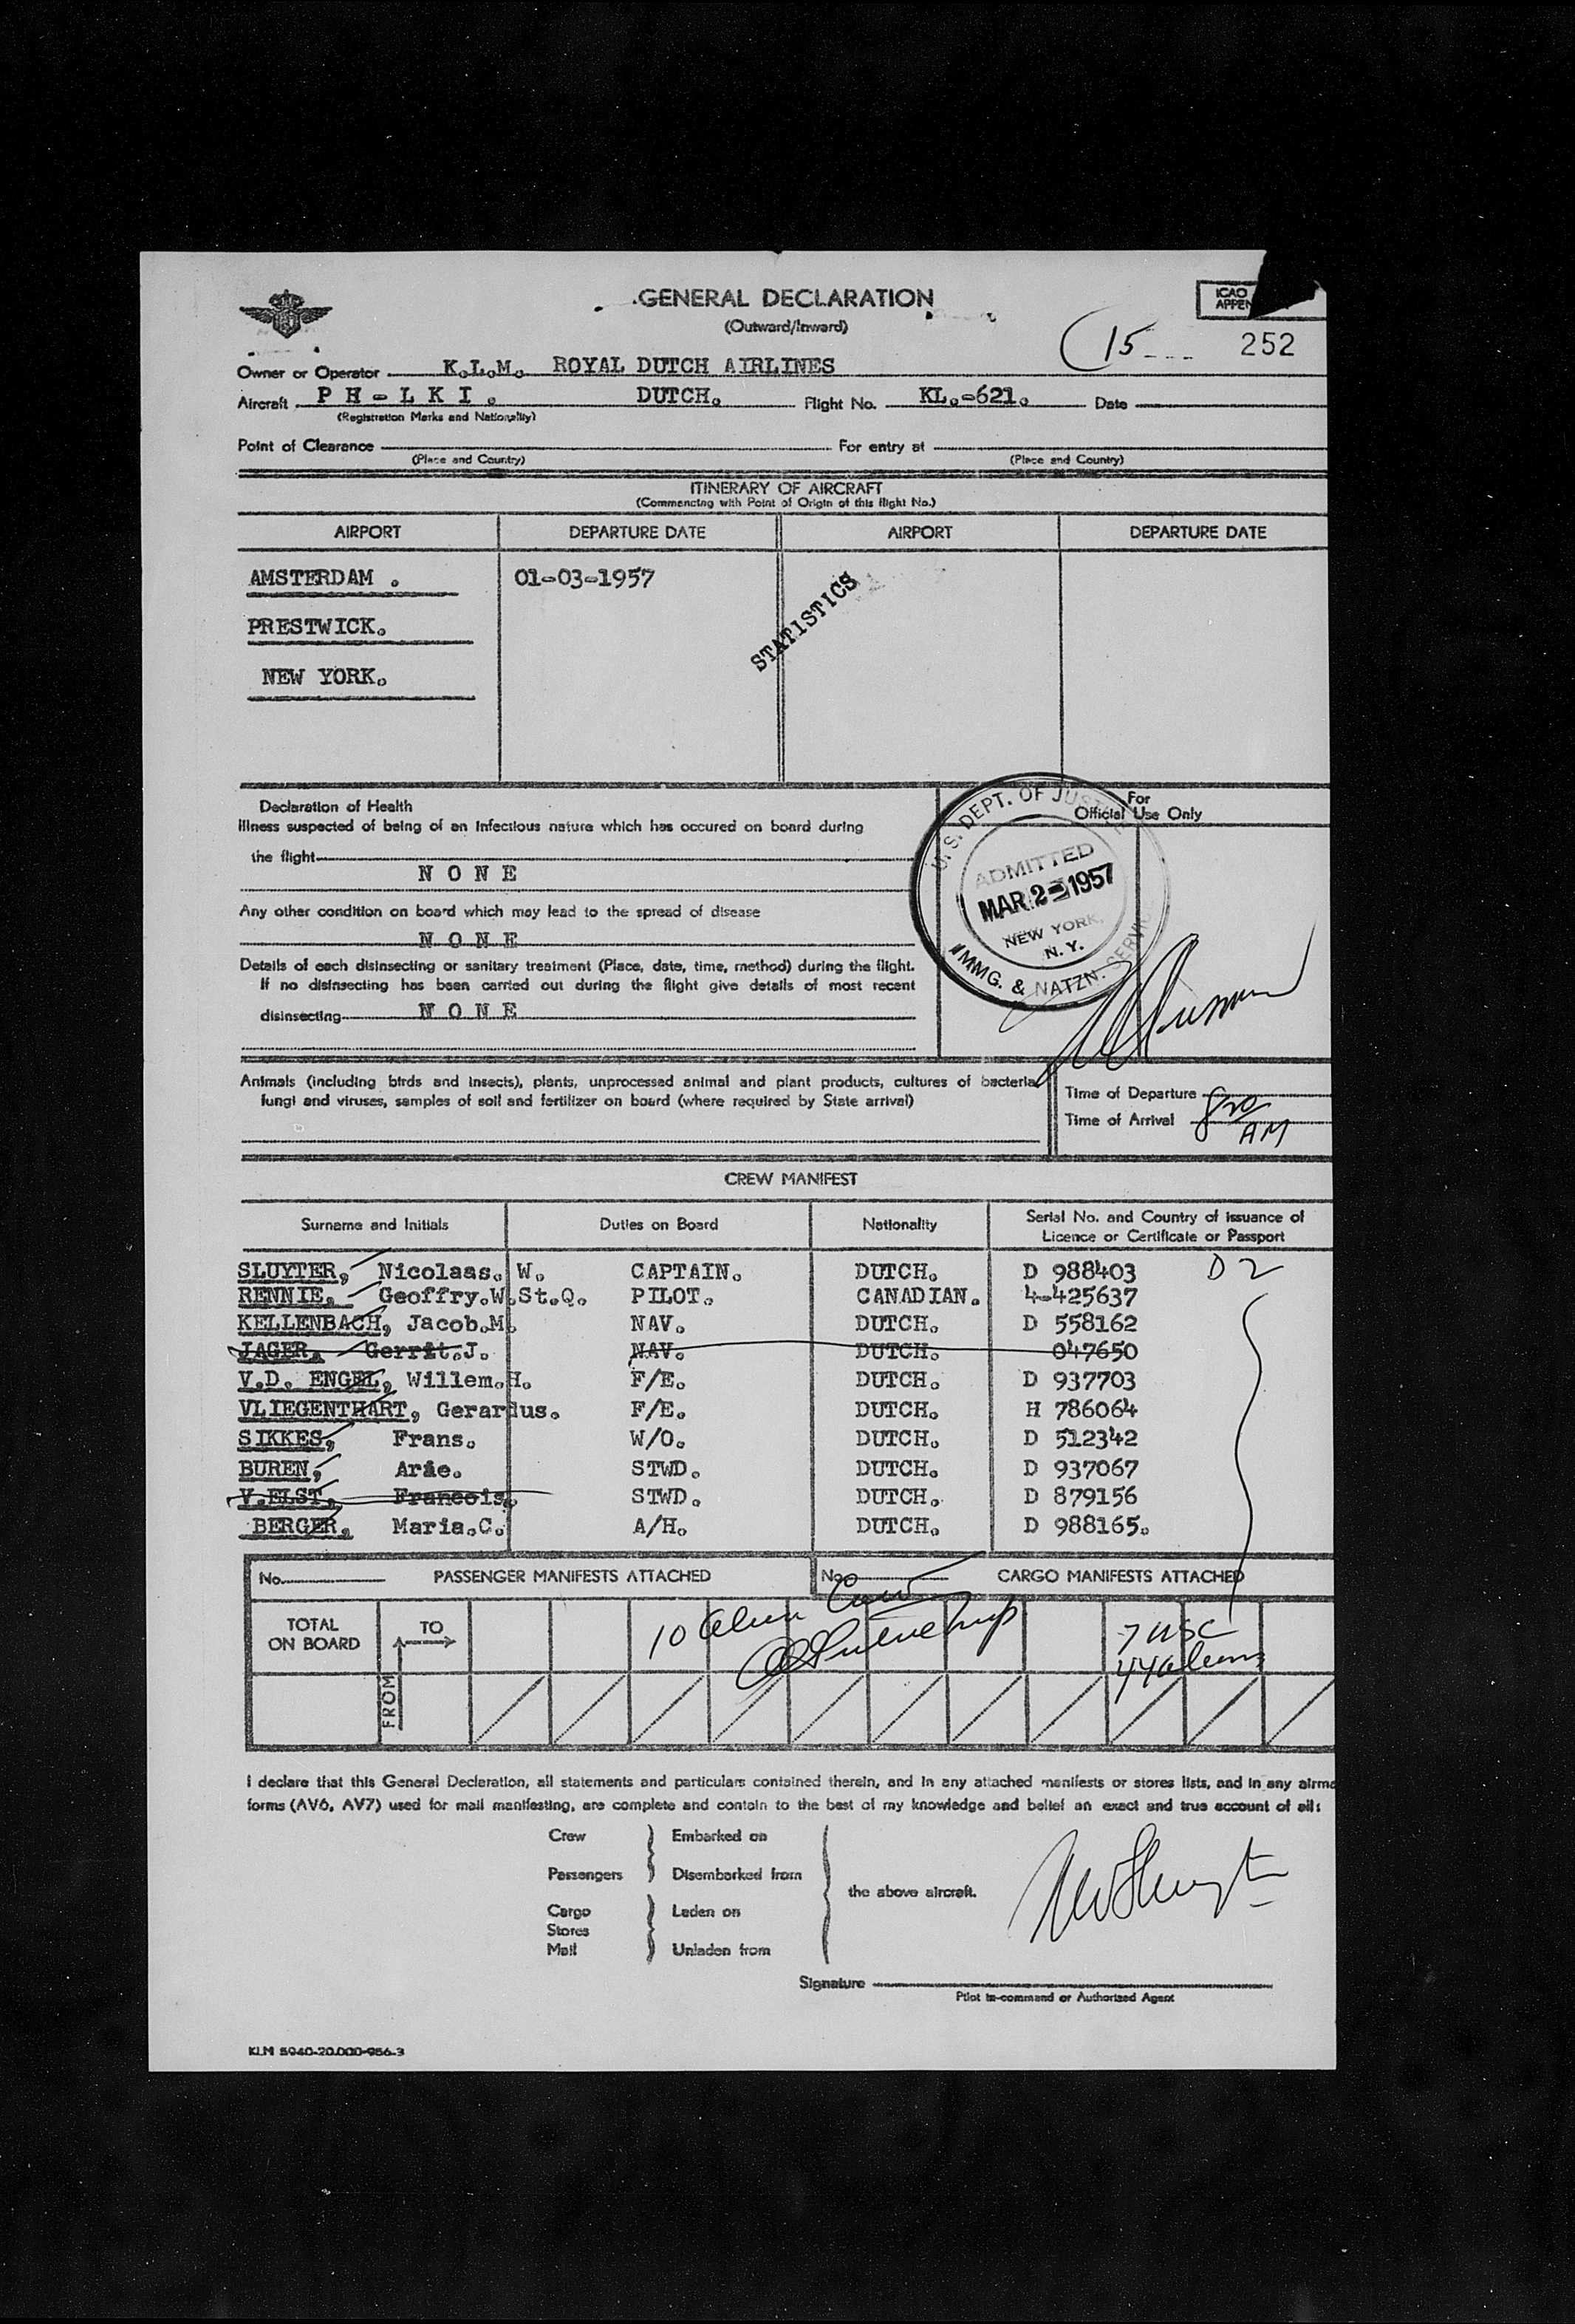 GENERAL DECLARATION
(Outward/Inward)
ICAO
APPEN
(15
252
Owner or Operator K.L.M. ROYAL DUTCH AIRLINES
Aircraft PH-LKI. DUTCH. Flight No. KL.-621. Date
(Registration Marks and Nationality)
Point of Clearance For entry at
(Place and Country) (Place and Country)
ITINERARY OF AIRCRAFT
(Commencing with Point of Origin of this flight No.)
AIRPORT DEPARTURE DATE AIRPORT DEPARTURE DATE
AMSTERDAM . 01-03-1957
STATISTICS
PRESTWICK.
NEW YORK.
Declaration of Health
Illness suspected of being of an infectious nature which has occured on board during
the flight
N O N E
Any other condition on board which may lead to the spread of disease
N O N E
Details of each disinsecting or sanitary treatment (Place, date, time, method) during the flight.
If no disinsecting has been carried out during the flight give details of most recent
disinsecting N O N E
For
Official Use Only
U.S. DEPT. OF JUSTICE
ADMITTED
MAR 2 1957
NEW YORK,
N. Y.
IMMG. & NATZN. SERVICE
Animals (including birds and insects), plants, unprocessed animal and plant products, cultures of bacteria
fungi and viruses, samples of soil and fertilizer on board (where required by State arrival)
Time of Departure
Time of Arrival 820 AM
CREW MANIFEST
Surname and Initials Duties on Board Nationality Serial No. and Country of issuance of
Licence or Certificate or Passport
SLUYTER, Nicolaas. W. CAPTAIN. DUTCH. D 988403 D2
RENNIE. Geoffry.W.St.Q. PILOT. CANADIAN. 4-425637
KELLENBACH, Jacob.M. NAV. DUTCH. D 558162
JAGER. Gerrit.J. NAV. DUTCH. 047650
V.D. ENGEL, Willem.H. F/E. DUTCH. D 937703
VLIEGENTHART, Gerardus. F/E. DUTCH. H 786064
SIKKES, Frans. W/O. DUTCH. D 512342
BUREN, Arie. STWD. DUTCH. D 937067
V.ELST, Francois. STWD. DUTCH. D 879156
BERGER. Maria.C. A/H. DUTCH. D 988165.
No. PASSENGER MANIFESTS ATTACHED No. CARGO MANIFESTS ATTACHED
TOTAL
ON BOARD
TO
FROM
10 alien Crew
7 USC
44 aliens
I declare that this General Declaration, all statements and particulars contained therein, and in any attached manifests or stores lists, and in any airma
forms (AV6, AV7) used for mail manifesting, are complete and contain to the best of my knowledge and belief an exact and true account of all:
Crew Embarked on
Passengers Disembarked from
the above aircraft.
Cargo Laden on
Stores
Mail Unladen from
Signature
Pilot in-command or Authorised Agent
KLM 5940-20.000-956-3